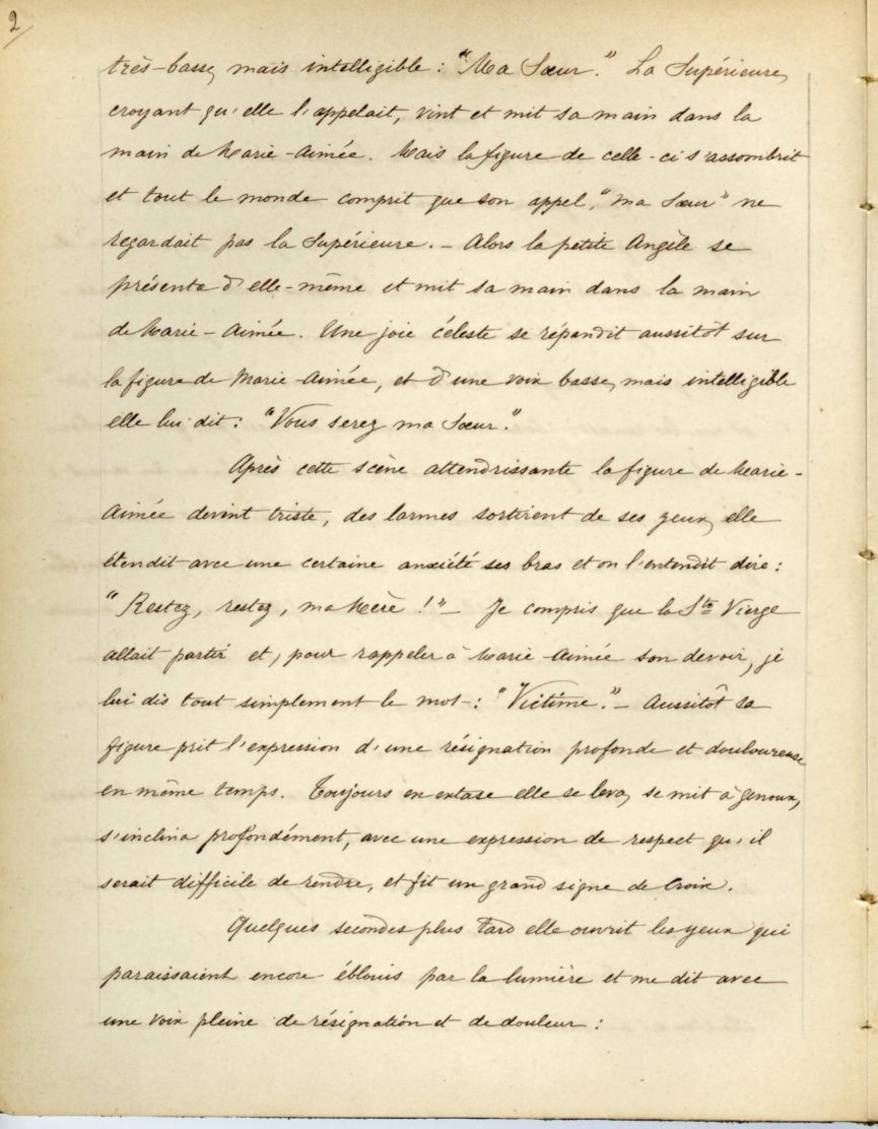 2
très-basse, mais intelligible : "Ma Sœur." La Supérieure,
croyant qu'elle l'appelait, vint et mit sa main dans la
main de Marie-Aimée. Mais la figure de celle-ci s'assombrit
et tout le monde comprit que son appel, "ma Sœur" ne
regardait pas la Supérieure. — Alors la petite Angèle se
présenta d'elle-même et mit sa main dans la main
de Marie-Aimée. Une joie céleste se répandit aussitôt sur
la figure de Marie-Aimée, et d'une voix basse, mais intelligible
elle lui dit : "Vous serez ma Sœur."
Après cette scène attendrissante la figure de Marie-
Aimée devint triste, des larmes sortirent de ses yeux, elle
étendit avec une certaine anxiété ses bras et on l'entendit dire :
"Restez, restez, ma Mère !" — Je compris que la Ste Vierge
allait partir et, pour rappeler à Marie-Aimée son devoir, je
lui dis tout simplement le mot : "Victime." — Aussitôt sa
figure prit l'expression d'une résignation profonde et douloureuse
en même temps. Toujours en extase elle se leva, se mit à genoux,
s'inclina profondément, avec une expression de respect qu'il
serait difficile de rendre, et fit un grand signe de Croix.
Quelques secondes plus tard elle ouvrit les yeux qui
paraissaient encore éblouis par la lumière et me dit avec
une voix pleine de résignation et de douleur :